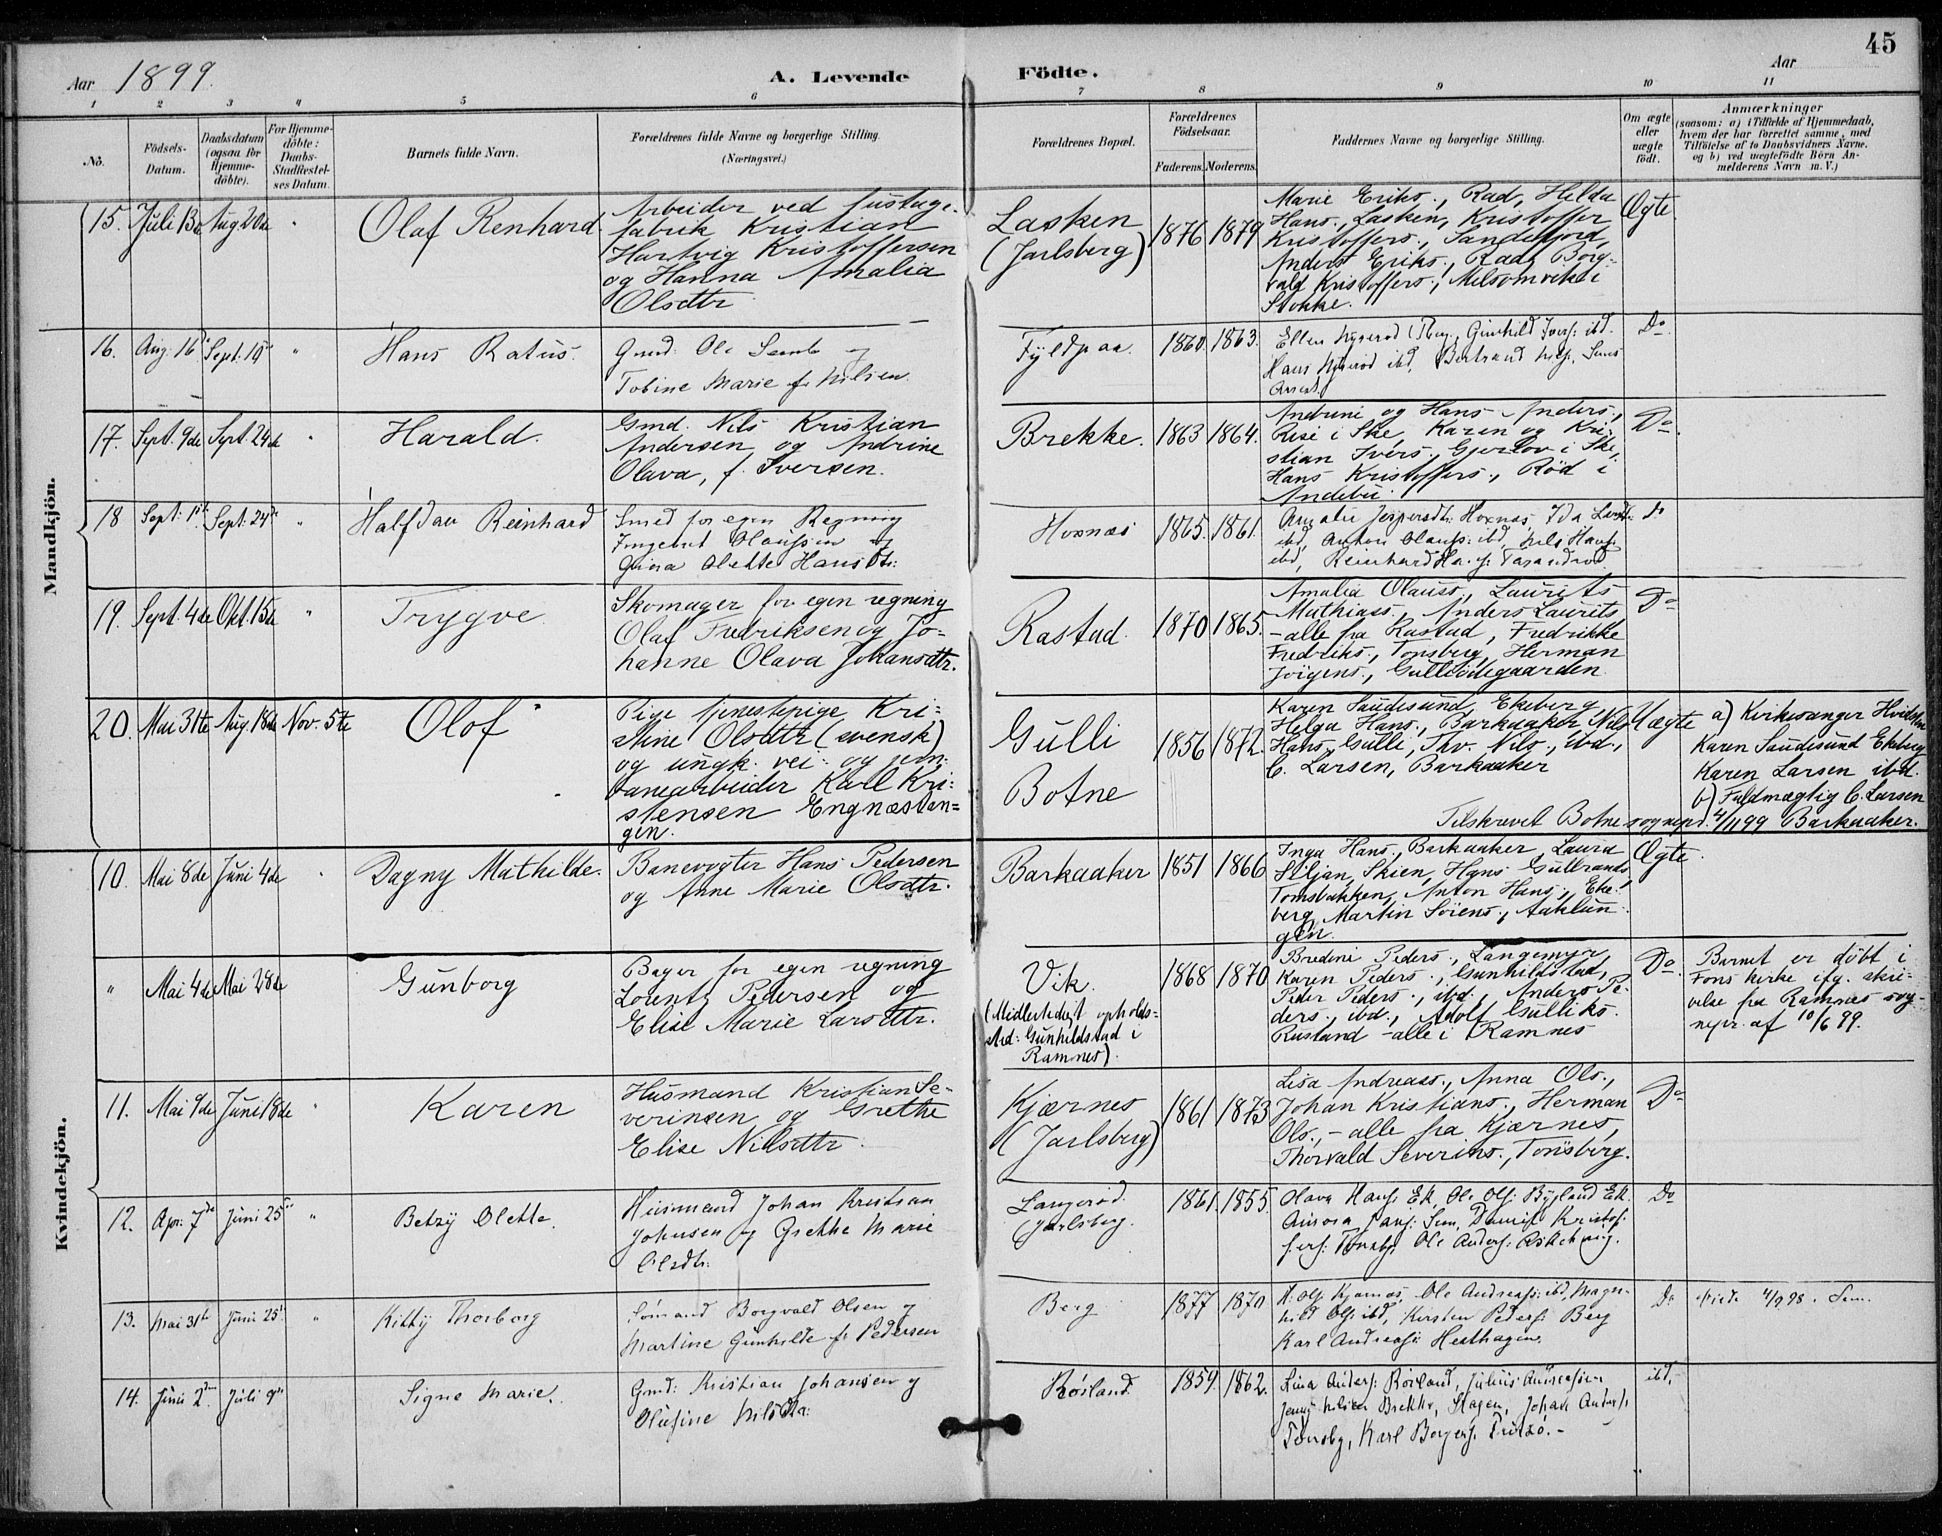 45
Aar 1899. A. Levende Födte. Aar
1 2 3 4 5 6 7 8 9 10 11
No. Födsels-Datum. Daabsdatum (ogsaa for Hjemme-döbte). For Hjemme-döbte: Daabs-Stadfæstel-ses Datum. Barnets fulde Navn. Forældrenes fulde Navne og borgerlige Stilling. (Næringsvei.) Forældrenes Bopæl. Forældrenes Födselsaar. Faderens. Moderens. Faddernes Navne og borgerlige Stilling. Om ægte eller uægte födt. Anmærkninger (saasom: a) i Tilfælde af Hjemmedaab, hvem der har forrettet samme, med Tilföielse af to Daabsvidners Navne. og b) ved uægtefödte Börn An-melderens Navn m. V.)
Mandkjön.
15. Juli 13de Aug 20de " Olaf Renhard.
Arbeider ved fustage-
fabrik Kristian
Hartvig Kristoffersen
og Hanna Amalia
Olsdtr
Lasken
(Jarlsberg)
1876 1879
Marie Eriks., Rad, Helda
Hans., Lasken, Kristoffer
Kristoffers., Sandefjord,
Anders Eriks., Rad, Borg-
vald Kristoffers., Melsomvik i
Stokke.
Ægte
16. Aug. 16 Sept. 19 " Hans Ratus.
Gmd: Ole Semb og
Tobine Marie f. Nilsen.
Fyldpaa. 1860. 1863.
Gunhild Ivers: ibd.
Hans ibd,
Do
17. Sept. 9de Sept. 24de " Harald.
Gmd. Nils Kristian
Andersen og Andrine
Olava, f. Iversen.
Brekke. 1863 1864.
Andrine og Hans Anders.,
Rise i Ske, Karen og Kri-
stian Ivers., Gjerlov i Ske,
Hans Kristoffers., Röd i
Andebu.
Do.
18 Sept: 1ste Sept: 24de " Halfdan Reinhard
Smed for egen Regning
Ingebret Olaussen og
Olette Hansdtr:
Hoxnæs 1865. 1861.
Amalie Jespersdtr: Hoxnæs, Ida
ibd, Anton Olauss: ibd, Nils Hans:
ibd, Reinhard
Do
19. Sept. 4de Okt. 15de " Trygve
Skomager for egen regning
Olaf Fredriksen og Jo-
hanne Olava Johansdtr.
Rastad. 1870 1865.
Amalia Olauss., Laurits
Mathiass., Anders Laurits
- alle fra Rastad, Fredrikke
Fredriks., Tönsberg, Herman
Jörgens., Gulliödegaarden
Do
20. Mai 31te Aug. 18de Nov. 5te Olof
Pige tjenestepige Kri-
stine Olsdtr (svensk)
og ungk. vei- og jern-
banearbeider Karl Kri-
stensen Engnæstan-
gen.
Gulli
Botne
1856 1872.
Karen Saudisund, Ekeberg
Helga Hans., Barkaaker Nils
Hans., Gulli, Thv. Nils., ibd,
C. Larsen, Barkaaker
Uægte
a) Kirkesanger Hvidsten
Karen Saudisund Ekeberg
Karen Larsen ibd.
b) Fuldmægtig C. Larsen
Barkaaker.
Tilskrevet Botne sognepr. 4/11 99
Kvindekjön.
10. Mai 8de Juni 4de " Dagny Mathilde.
Banevogter Hans Pedersen
og Anne Marie Olsdtr.
Barkaaker 1851 1866
Inga Hans, Barkaaker, Laura
Siljan, Skien, Hans Gulbrands,
Tomsbakken, Anton Hans., Eke-
berg, Martin Sörens., Aaklun-
gen.
Ægte.
" Mai 4de Mai 28de Gunborg
Bager for egen regning
Lorentz Pedersen og
Elise Marie Larsdtr.
Vik.
(Midlertidigt opholds-
sted: Gunhildstad i
Ramnes).
1868 1870
Bredine Peders., Langemyr,
Karen Peders., Gunhildstad,
Peder Peders., ibd., Anders Pe-
ders., ibd., Adolf Gulliks.
Rustand - alle i Ramnes
Do
Barnet er döbt i
Fons kirke ifg. skri-
velse fra Ramnes sog-
nepr. af 10/6 99.
11. Mai 9de Juni 18de " Karen
Husmand Kristian Se-
verinsen og Grethe
Elise Nilsdtr.
Kjærnes
(Jarlsberg)
1861 1873
Lisa Andreass., Anna Ols.,
Johan Kristians., Herman
Ols., - alle fra Kjærnes,
Thorvald Severins., Tönsberg.
Do
12. Apr: 7de Juni 25de " Betzy Olette.
Husmand Johan Kristian
Johnsen og Grethe Marie
Olsdtr:
Langeröd.
(Jarlsberg.
1861. 1855.
Olava Hans: Ek, Ole Ols: Bygland Ek.
Aurora Sem,
Tönsbg, Ole Anders:
Do
13. Mai 31te Juni 25 " Kitty Thorborg
Sömand Borgvald Olsen og
Martine Gunhilde f. Pedersen
Berg 1877 1870
Ols: Kjærnæs, Ole Andreas: ibd, Magn-
hild Ols: ibd, Kirsten Peders: Berg
Karl Andreas: Hesthagen
Do
Viede 4/9 98. Sem.
14. Juni 2den Juli 9de Signe Marie.
Gmd: Kristian Johansen og
Olufine Nilsdtr:
Röiland 1859. 1862.
Anders: Röiland, Julius Andreassen
Jenny Nilsen Brekke, Slagen, Johan Anders:
Tönsbg, Karl Borgers:
ibd.